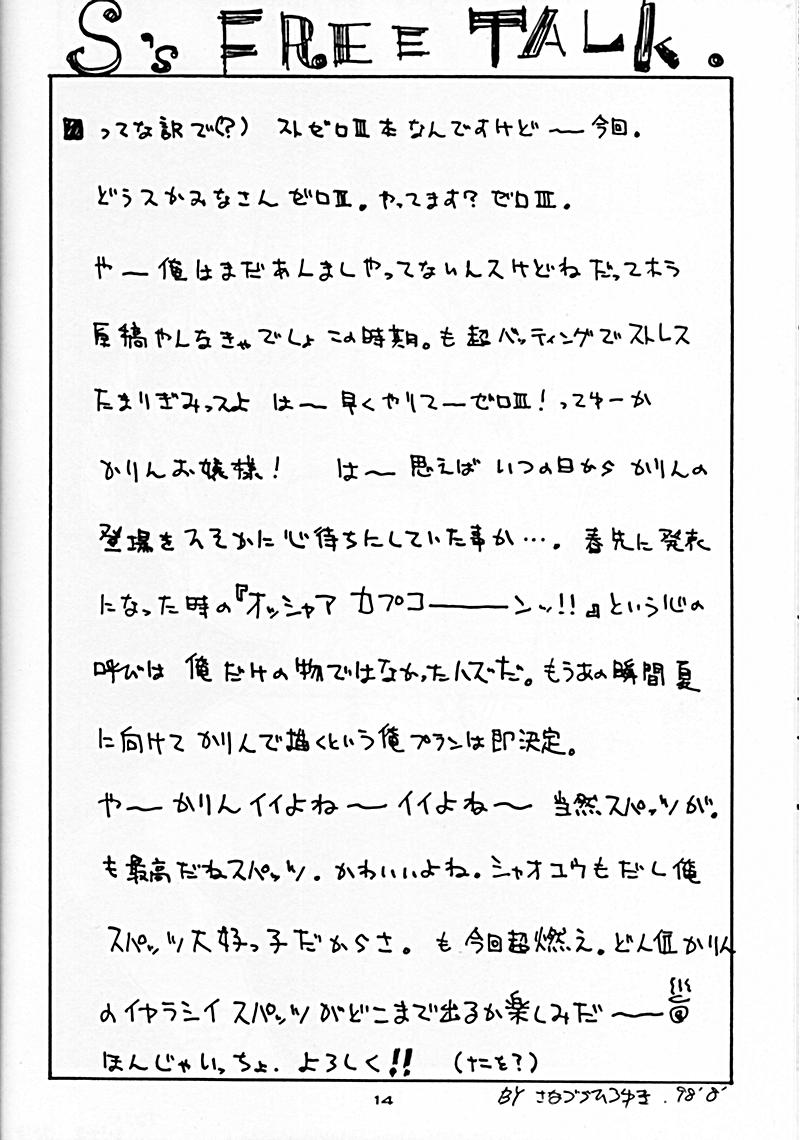 S's FREE TALK.
ってな訳で(?) ストゼロⅢ本なんですけど〜今回。
どうスかみなさんゼロⅢ。やってます?ゼロⅢ。
や〜俺はまだあんましやってないんスけどねだってホラ
原稿やんなきゃでしょこの時期。も超バッティングでストレス
たまりぎみっスよ は〜早くやりてーゼロⅢ!ってゆーか
かりんお嬢様! は〜思えばいつの日からかりんの
登場をひそかに心待ちにしていた事か…。春先に発表
になった時の『オッシャア カプコ―――ンッ!!』という心の
呼びは俺だけの物ではなかったハズだ。もうあの瞬間夏
に向けてかりんで描くという俺プランは即決定。
や〜かりんイイよね〜イイよね〜当然スパッツが。
も最高だねスパッツ。かわいいよね。シャオユウもだし俺
スパッツ大好っ子だからさ。も今回超燃え。どん位かりん
のイヤラシイスパッツがどこまで出るか楽しみだ〜
ほんじゃいっちょ.よろしく!! (ナニを?)
14
BY 98'8'